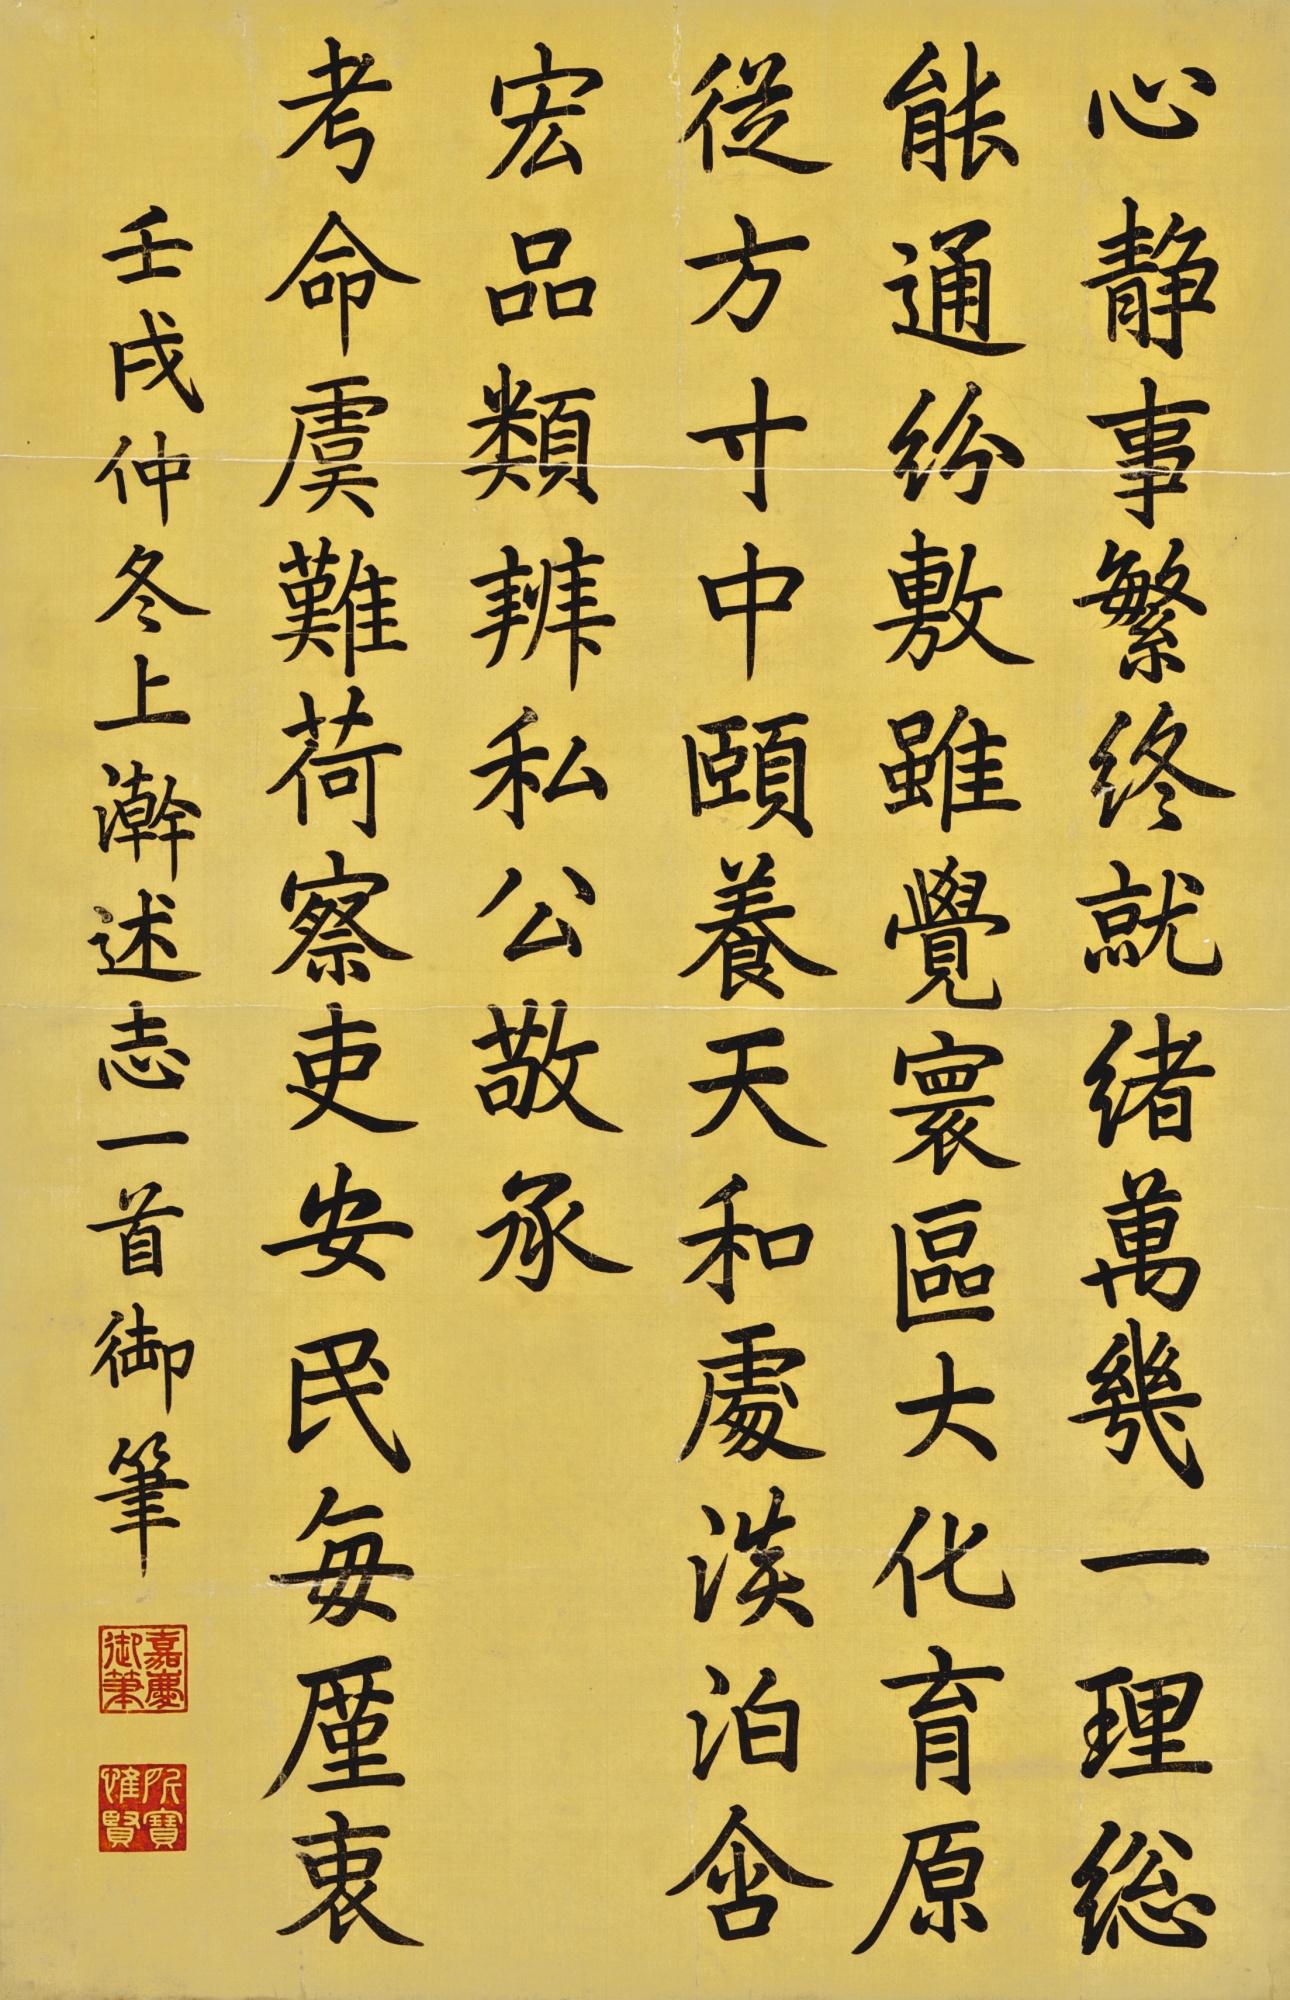 心静事繁終就緒萬幾一理総
能通紛敷雖覺寰區大化育原
從方寸中頤養天和處淡泊含
宏品類辨私公敬承
考命虞難荷察吏安民每厪衷
壬戌仲冬上澣述志一首御筆
嘉慶御筆
所寶惟賢